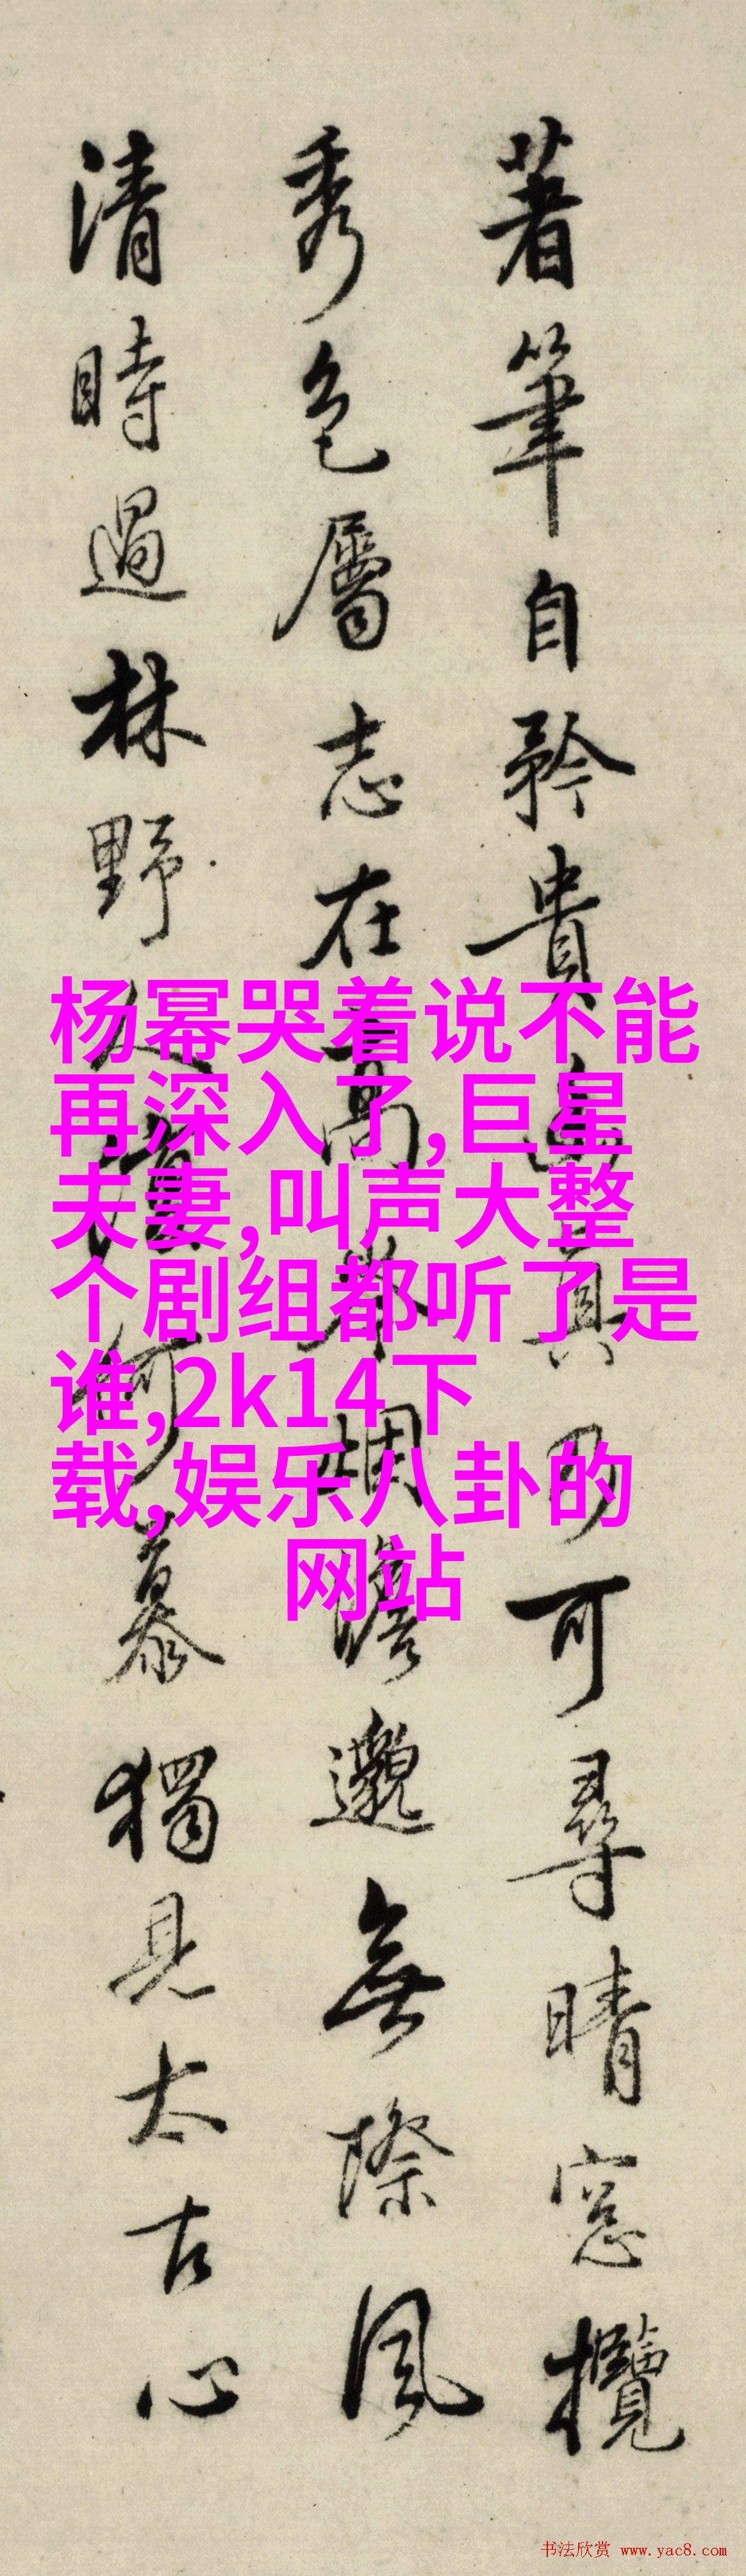 著筆自矜貴真乃可尋晴窓攬
秀色屬志在高岑烟瞻邈無際風
清時過林野人澹何慕獨見太古心
杨幂哭着说不能
再深入了,巨星
夫妻,叫声大整
个剧组都听了是
谁,2k14下
载,娱乐八卦的
网站
书法欣赏 www.yac8.com